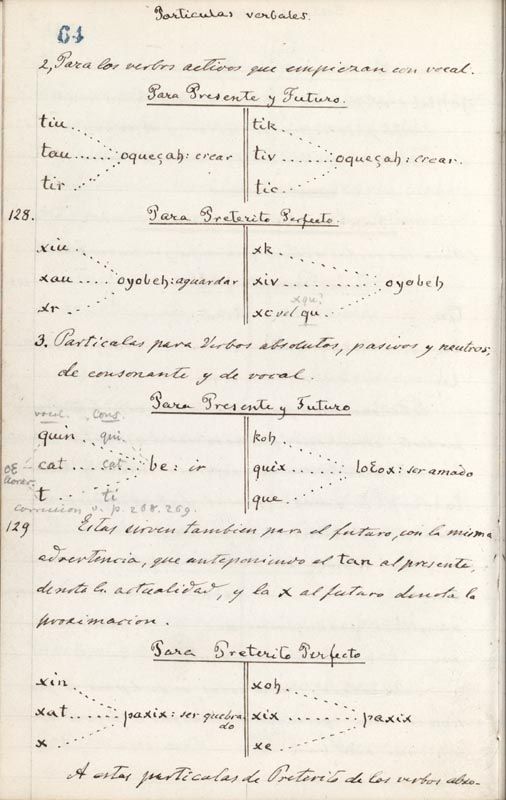 Particulas verbales.
64
2, Para los verbos activos que empiezan con vocal.
Para Presente y Futuro.
tiu tik
tau ..... oqueçah: crear tiv ........ oqueçah: crear.
tir tic
128. Para Preterito Perfecto.
xiu xk
xau .... oyobeh: aguardar xiv ........... oyobeh
xqu?
xr xc vel qu
3. Particulas para Verbos absolutos, pasivos y neutros,
de consonante y de vocal.
Para Presente y Futuro
vocal. Cons.
quin qui koh
cat cat be: ir quix ...... loɛox: ser amado
t ti que
correccion v. p. 268. 269.
129 Estas sirven tambien para el futuro, con la misma
advertencia, que anteponiendo el tan al presente,
denota la actualidad, y la x al futuro denota la
proximacion.
Para Preterito Perfecto
xin xoh
xat ...... paxix: ser quebrado xix ........ paxix
x xe
A estas particulas de Preterito de los verbos abso-